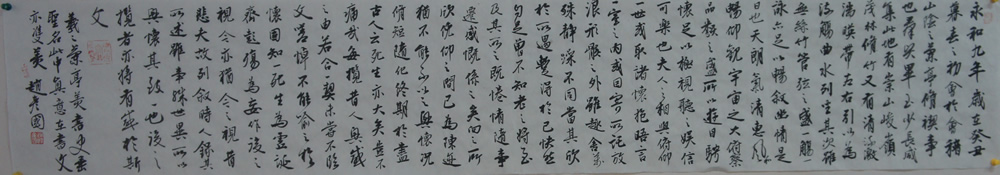 永和九年歲在癸丑
暮春之初會於會稽
山陰之蘭亭脩禊事
也群賢畢至少長咸
集此地有崇山峻嶺
茂林脩竹又有清流激
湍暎帶左右引以為
流觴曲水列坐其次雖
無絲竹管弦之盛一觴
一詠亦足以暢敘幽情是
日也天朗氣清惠風
和暢仰觀宇宙之大俯察
品類之盛所以遊目騁
懷足以極視聽之娛信
可樂也夫人之相與俯仰
一世或取諸懷抱晤言
一室之內或因寄所託放
浪形骸之外雖趣舍萬
殊靜躁不同當其欣
於所遇暫得於己快然
自足曾不知老之將至
及其所之既倦情隨事
遷感慨係之矣向之所
欣俛仰之間已為陳迹
猶不能不以之興懷況
脩短隨化終期於盡
古人云死生亦大矣豈不
痛哉每攬昔人興感
之由若合一契未嘗不臨
文嗟悼不能喻之於
懷固知一死生為虛誕
齊彭殤為妄作後之
視今亦猶今之視昔
悲夫故列敘時人錄其
所述雖世殊事異所以
興懷其致一也後之
攬者亦將有感於斯
文